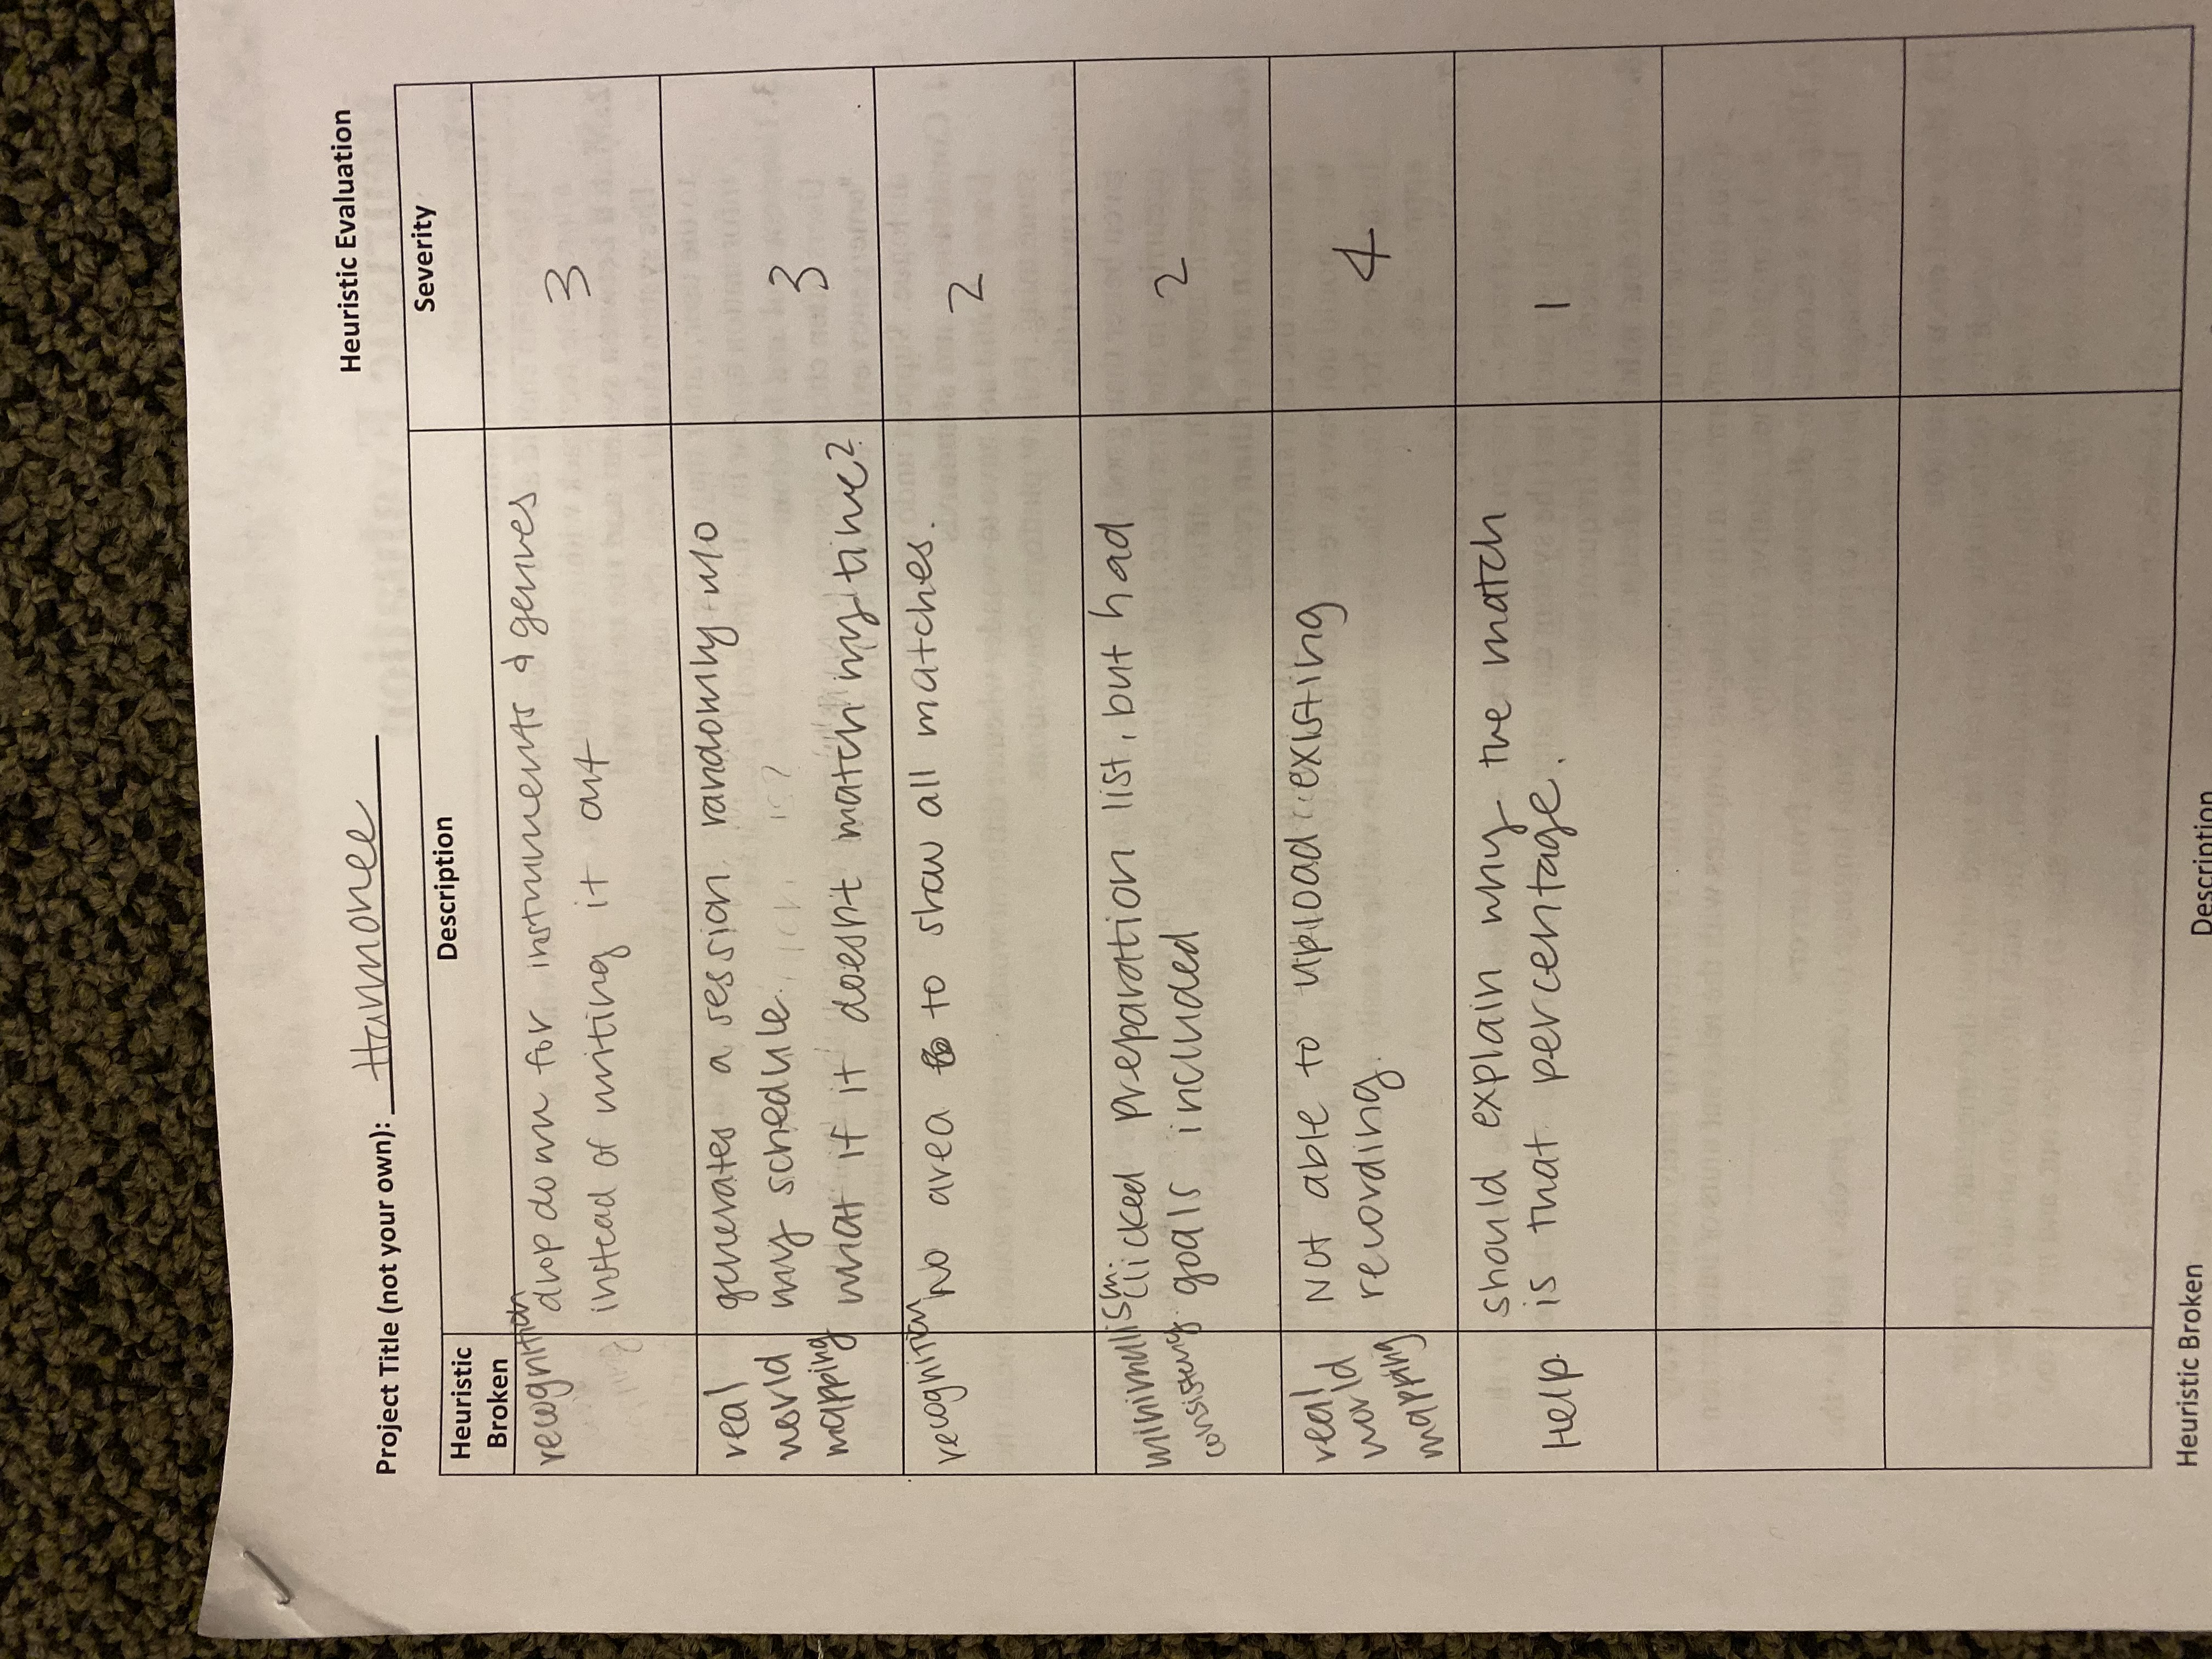 Heuristic Evaluation
Project Title (not your own): Harmonee
Heuristic Broken
Description
Severity
recognition
drop down for instruments & genres
instead of writing it out
3
real
world
mapping
generates a session randomly w/o
my schedule.
what if it doesn't match my time?
3
recognition
No area to show all matches.
2
minimalism.
consistency.
clicked preparation list, but had
goals included
2
real
world
mapping
Not able to upload existing
recording.
4
Help.
should explain why the match
is that percentage.
1
Heuristic Broken
Description